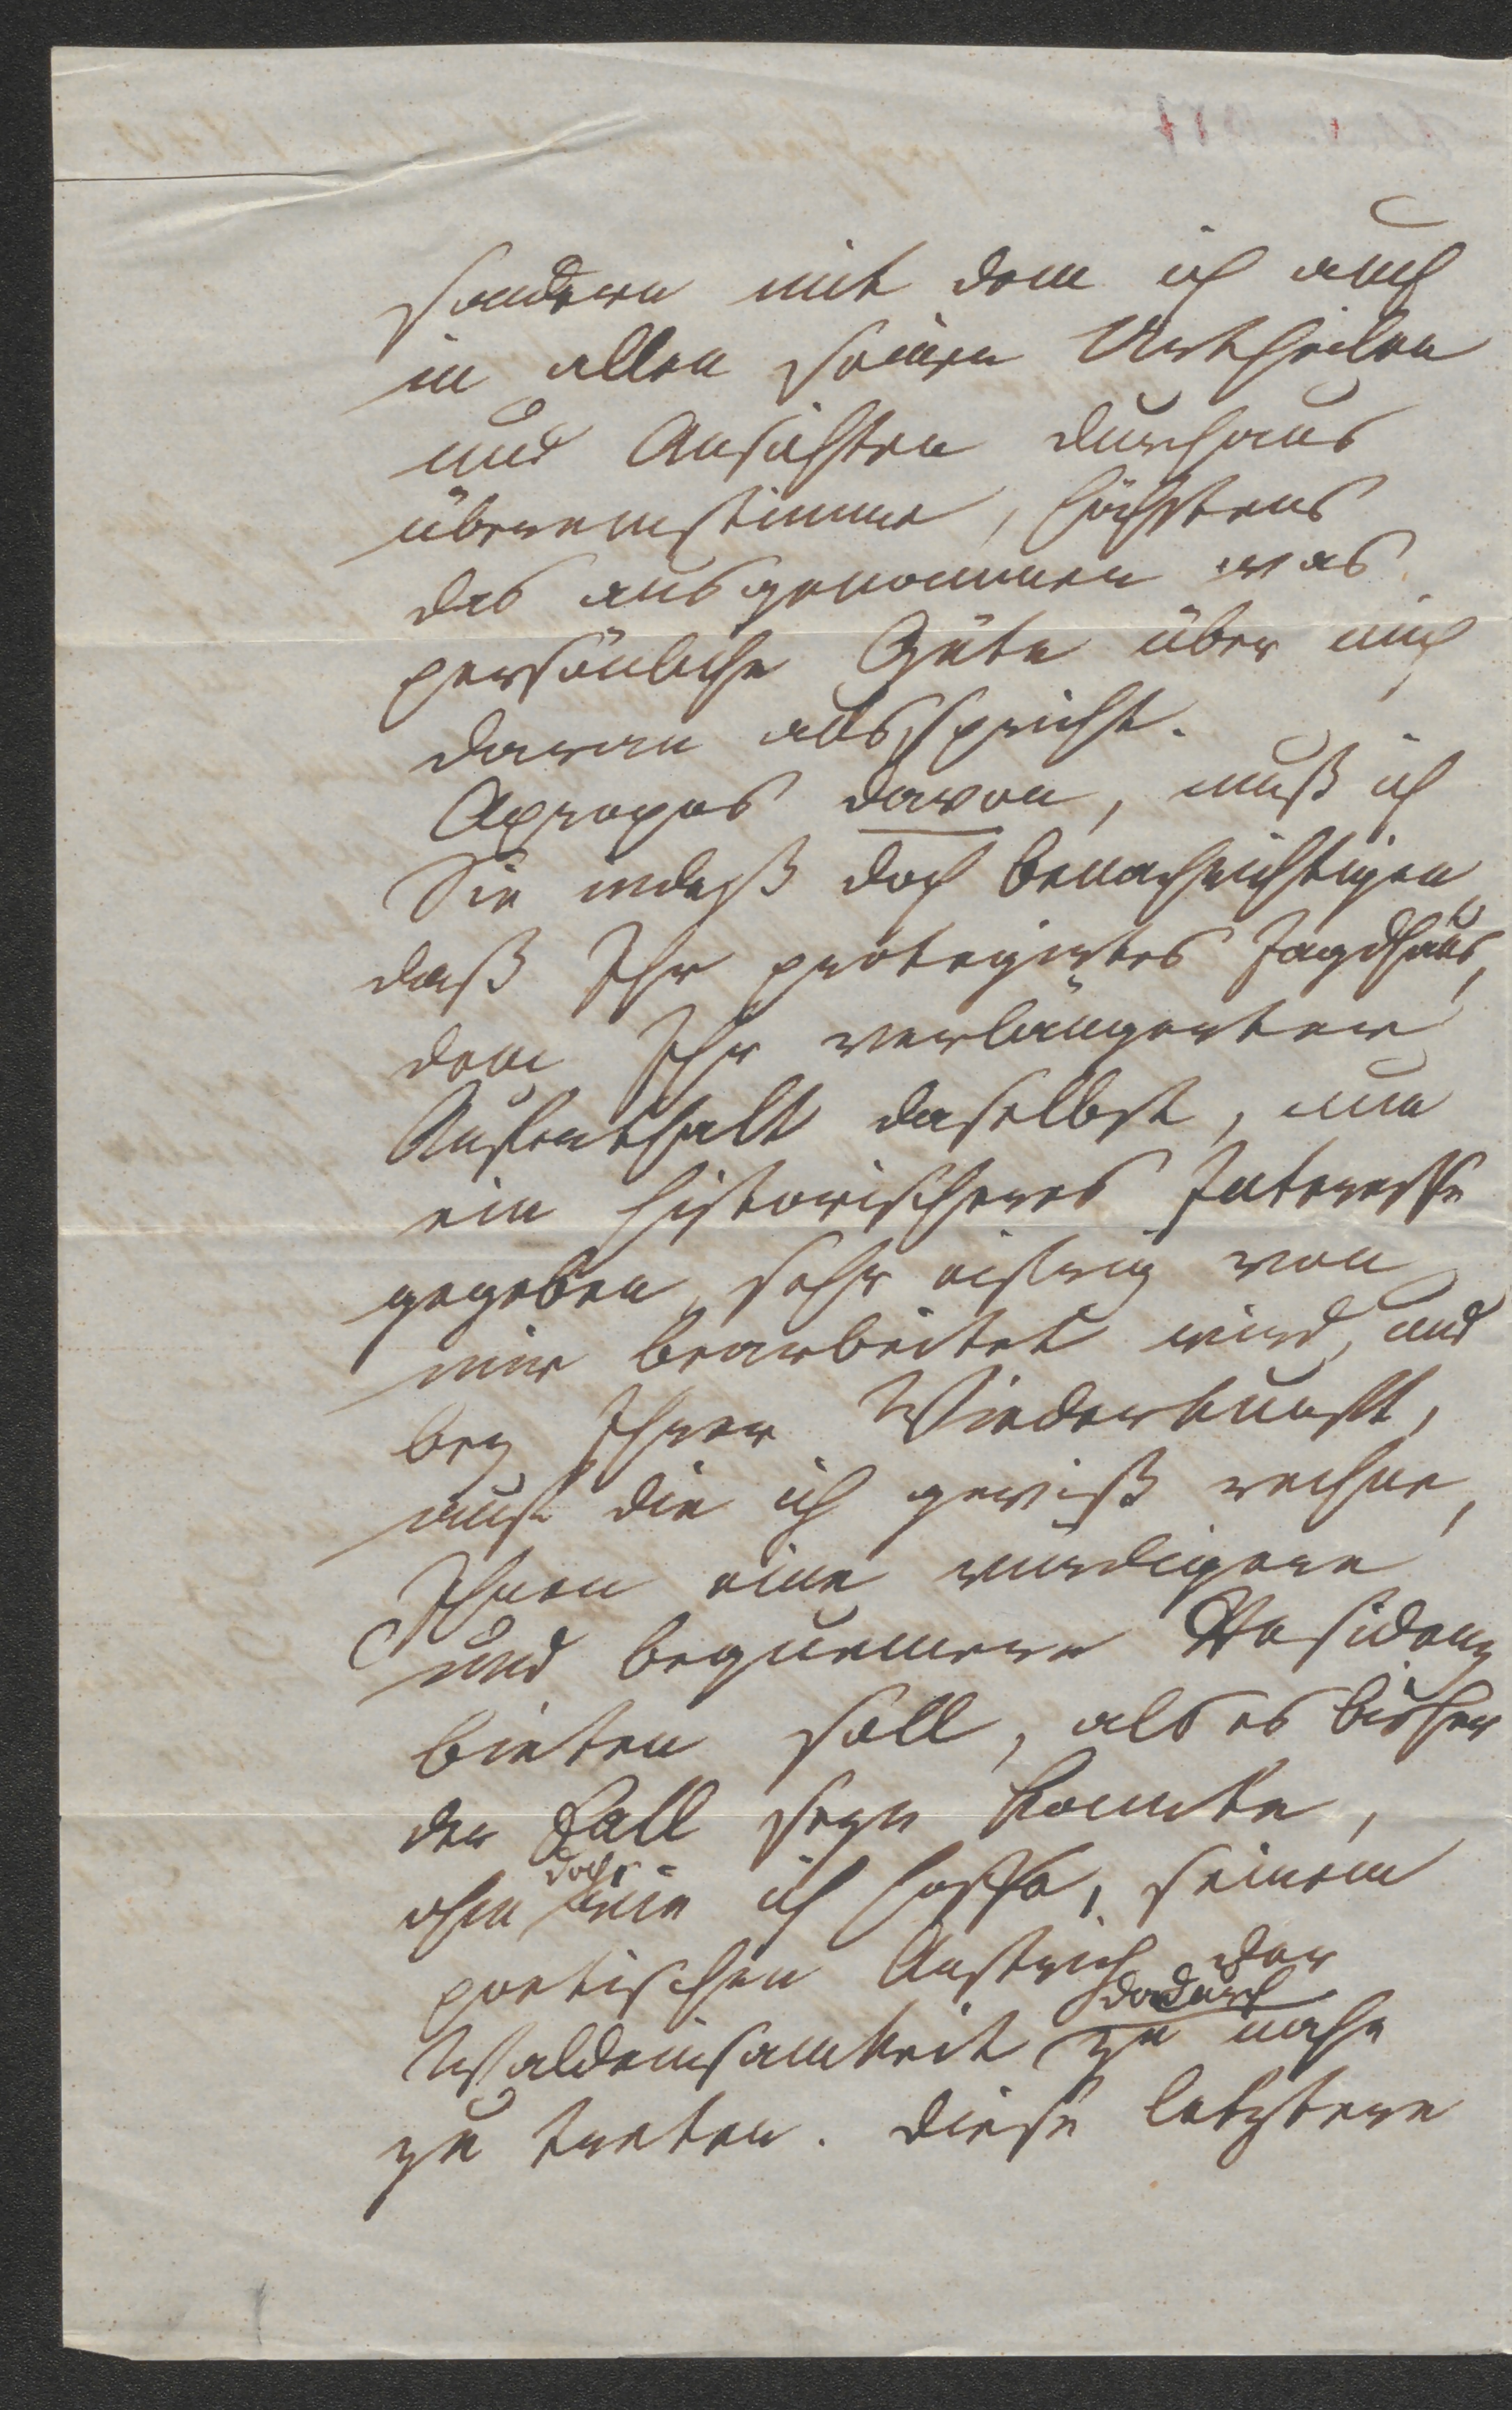 sondern mit dem ich auch
in allen seinen Urtheilen
und Ansichten durchaus
übereinstimme, höchstens
das ausgenommen was
persönliche Güte über mich
daran ausspricht.
Apropos davon, muß ich
Sie indeß doch benachrichtigen
daß Ihr protegirtes Jagdhaus,
dem Ihr verlängerter
Aufenthalt daselbst, nun
ein historischeres Interesse
gegeben, sehr eifrig von
mir bearbeitet wird, und
bey Ihrer Wiederkunft,
auf die ich gewiß rechne,
Ihnen eine würdigere
und bequemere Residenz
bieten soll, als es bisher
der Fall seyn konnte,
ohne doch wie ich hoffe, seinem
poetischen Anstrich der
Waldeinsamkeit dadurch zu nahe
zu treten. Diese letztere